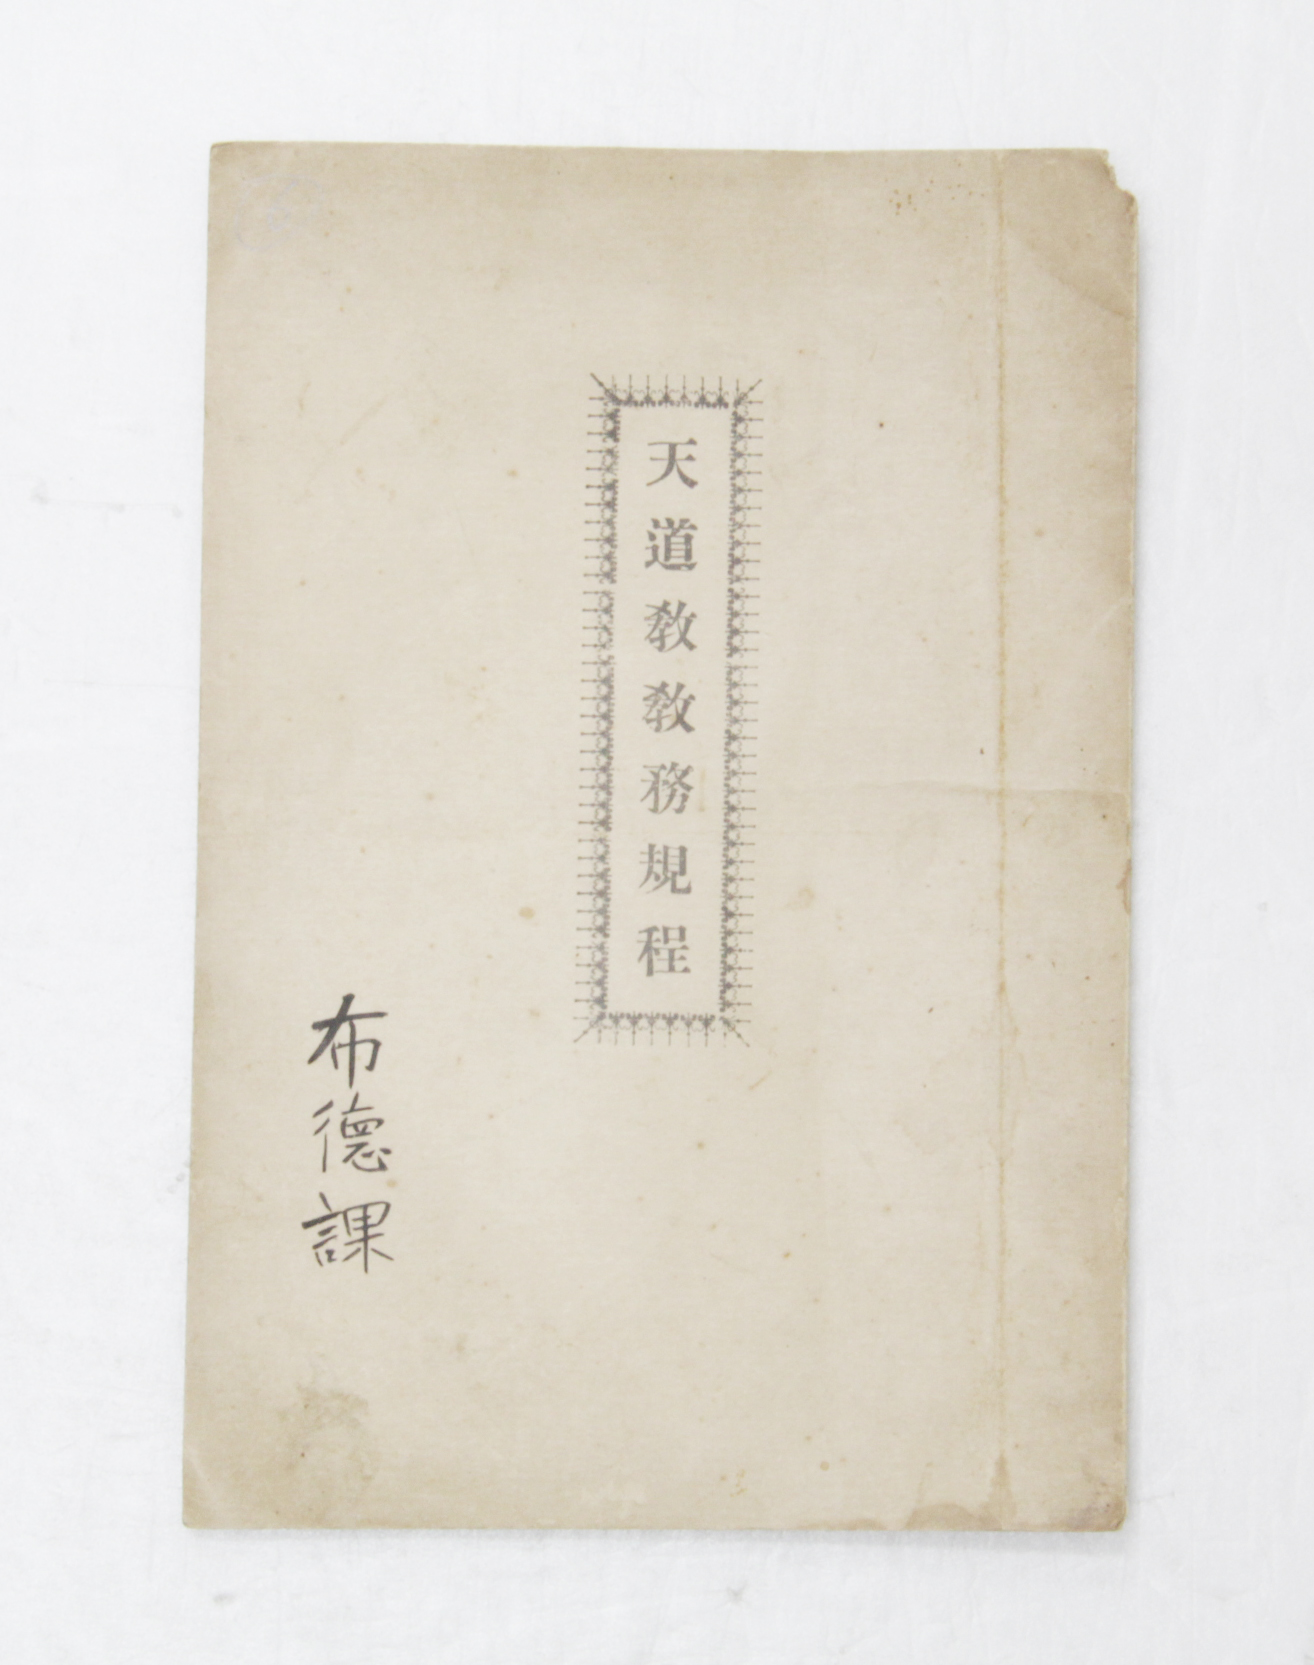 天道敎敎務規程
布德課